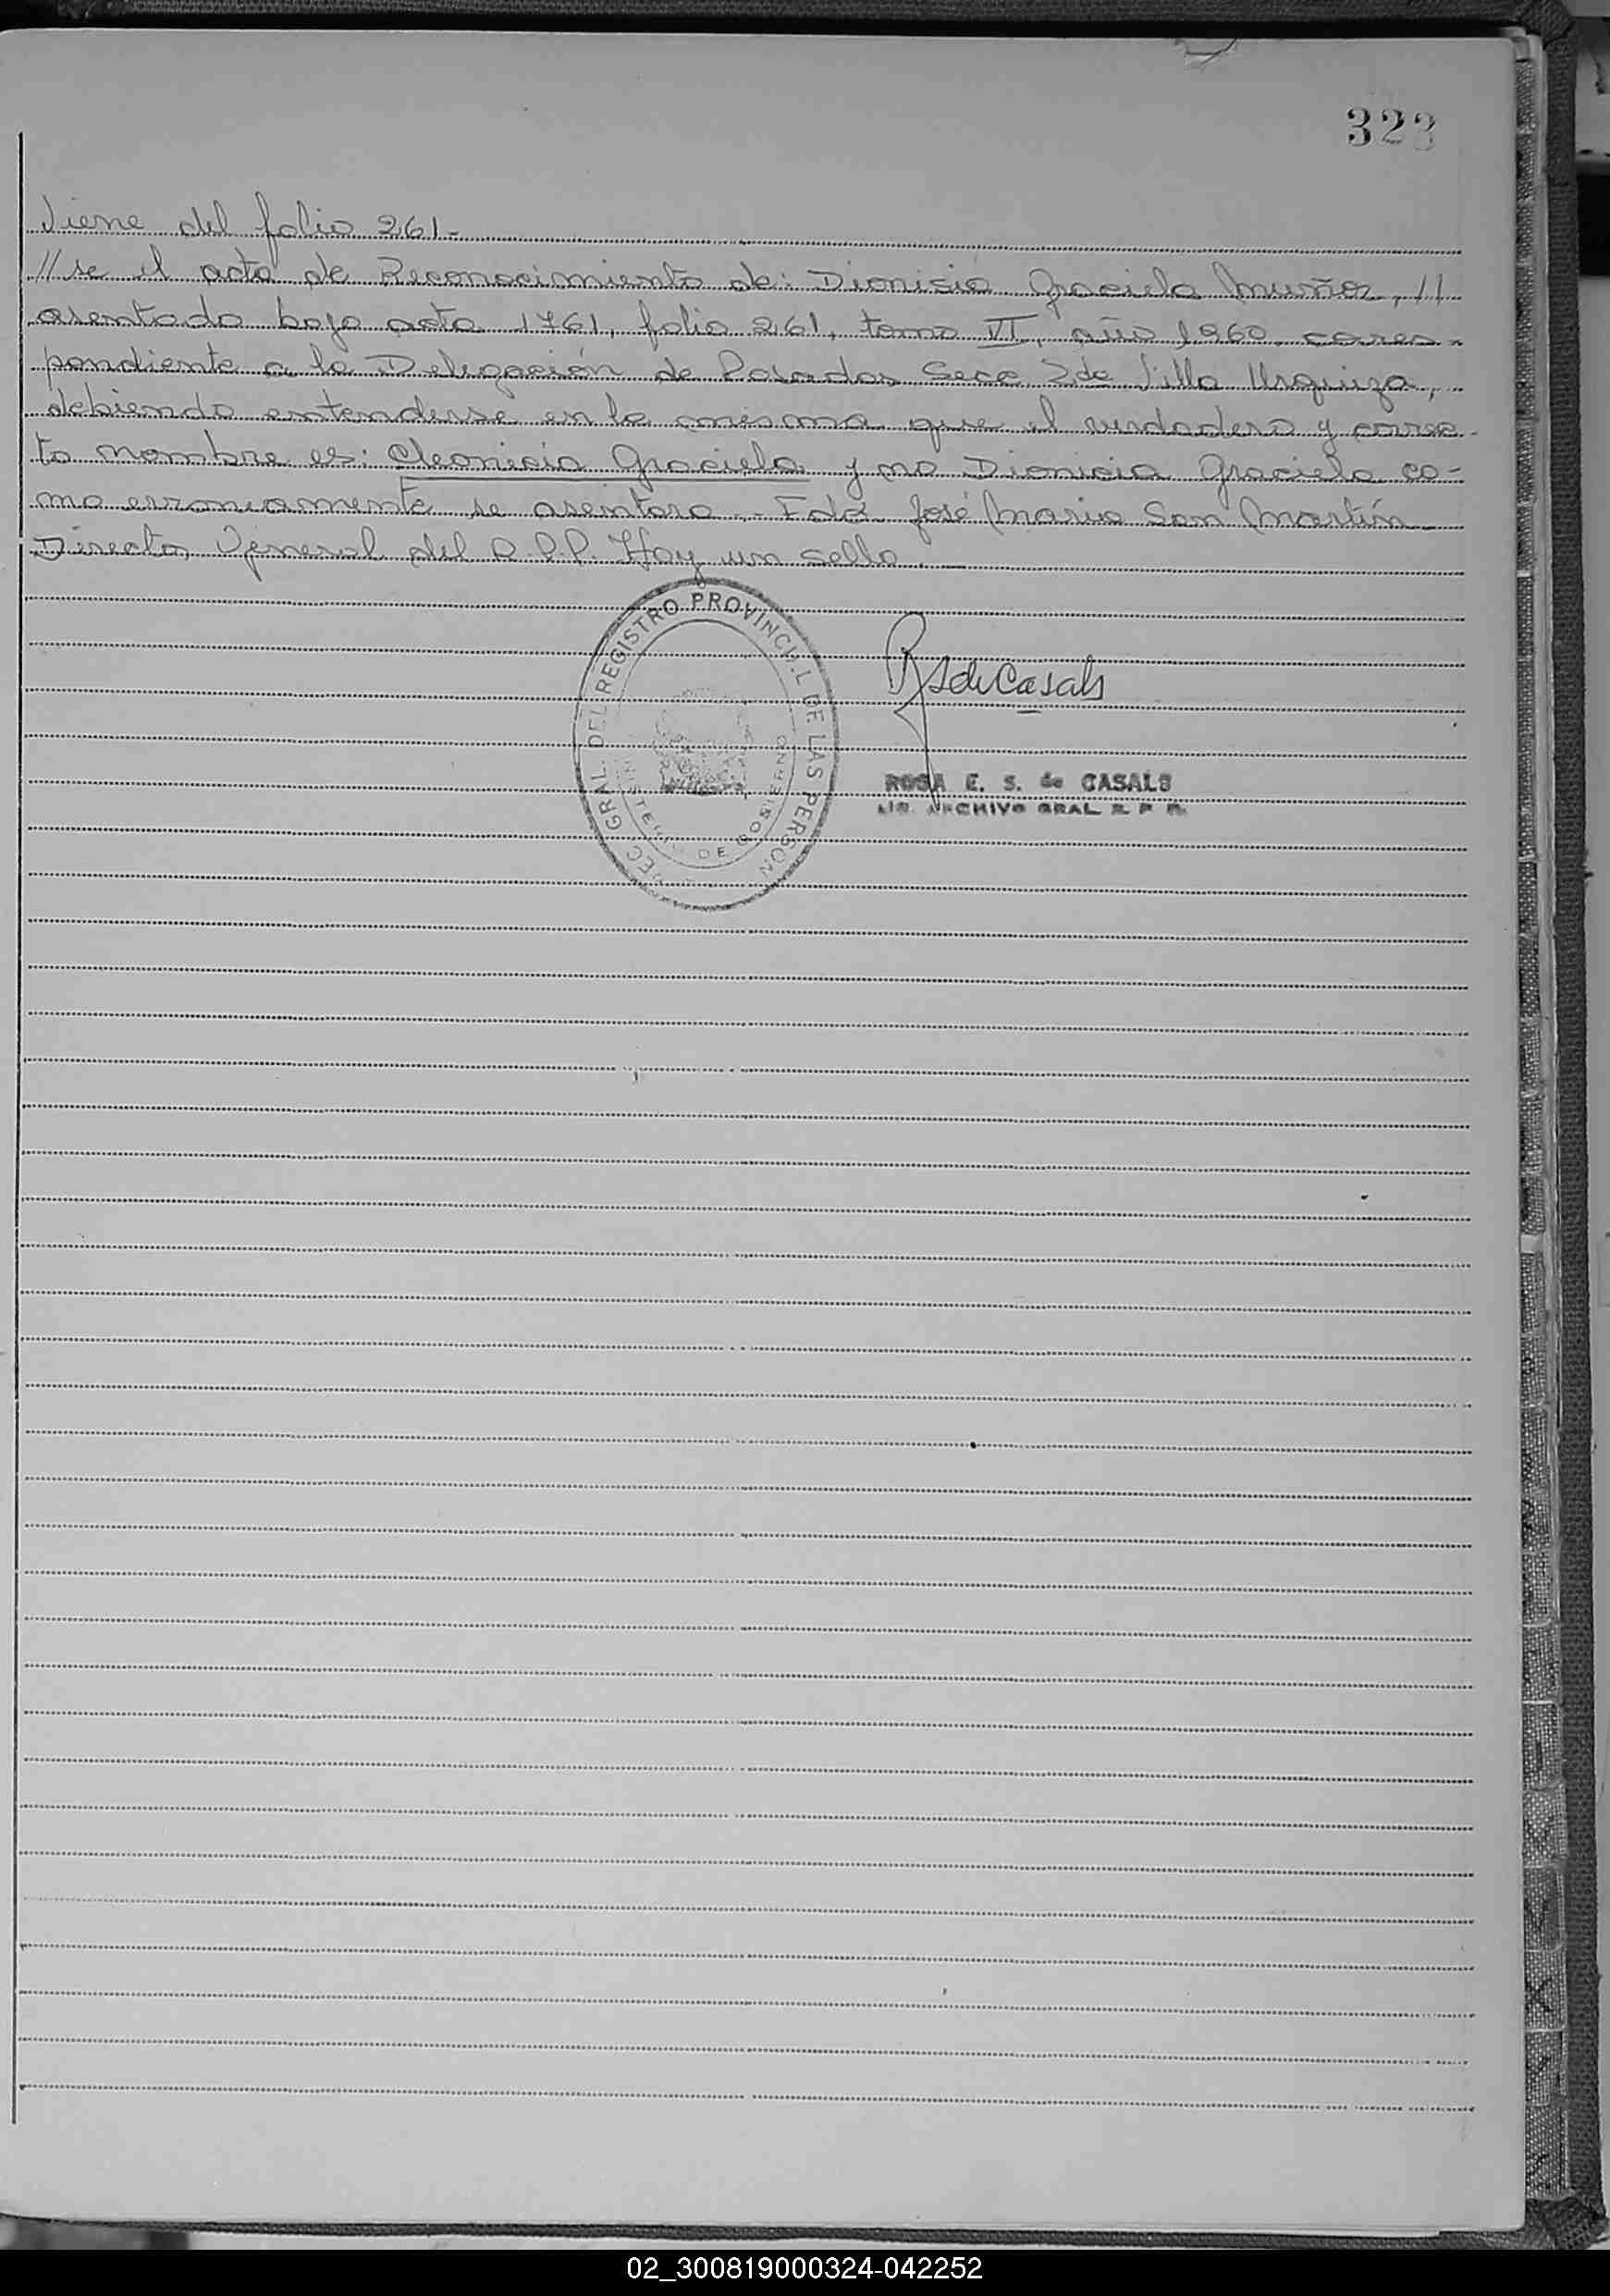 323
Viene del folio 261.-
// se el acta de Reconocimiento de: Dionisia Graciela Muñoz, //
asentada bajo acta 1761, folio 261, tomo VI, año 1960 corres-
pondiente a la Delegación de Posadas Secc 2da Villa Urquiza,
debiendo entenderse en la misma que el verdadero y correc-
to nombre es: Cleonicia Graciela y no Dionicia Graciela co-
mo erroneamente se asentara.- Fdo José Mario San Martín
Director General del R.P.P. Hay un sello.
GRAL DEL REGISTRO PROVINCIAL DE LAS PERSON
DE GOBIERNO
RSdeCasals
ROSA E. S. de CASALS
ARCHIVO GRAL R. P. P.
02_300819000324-042252